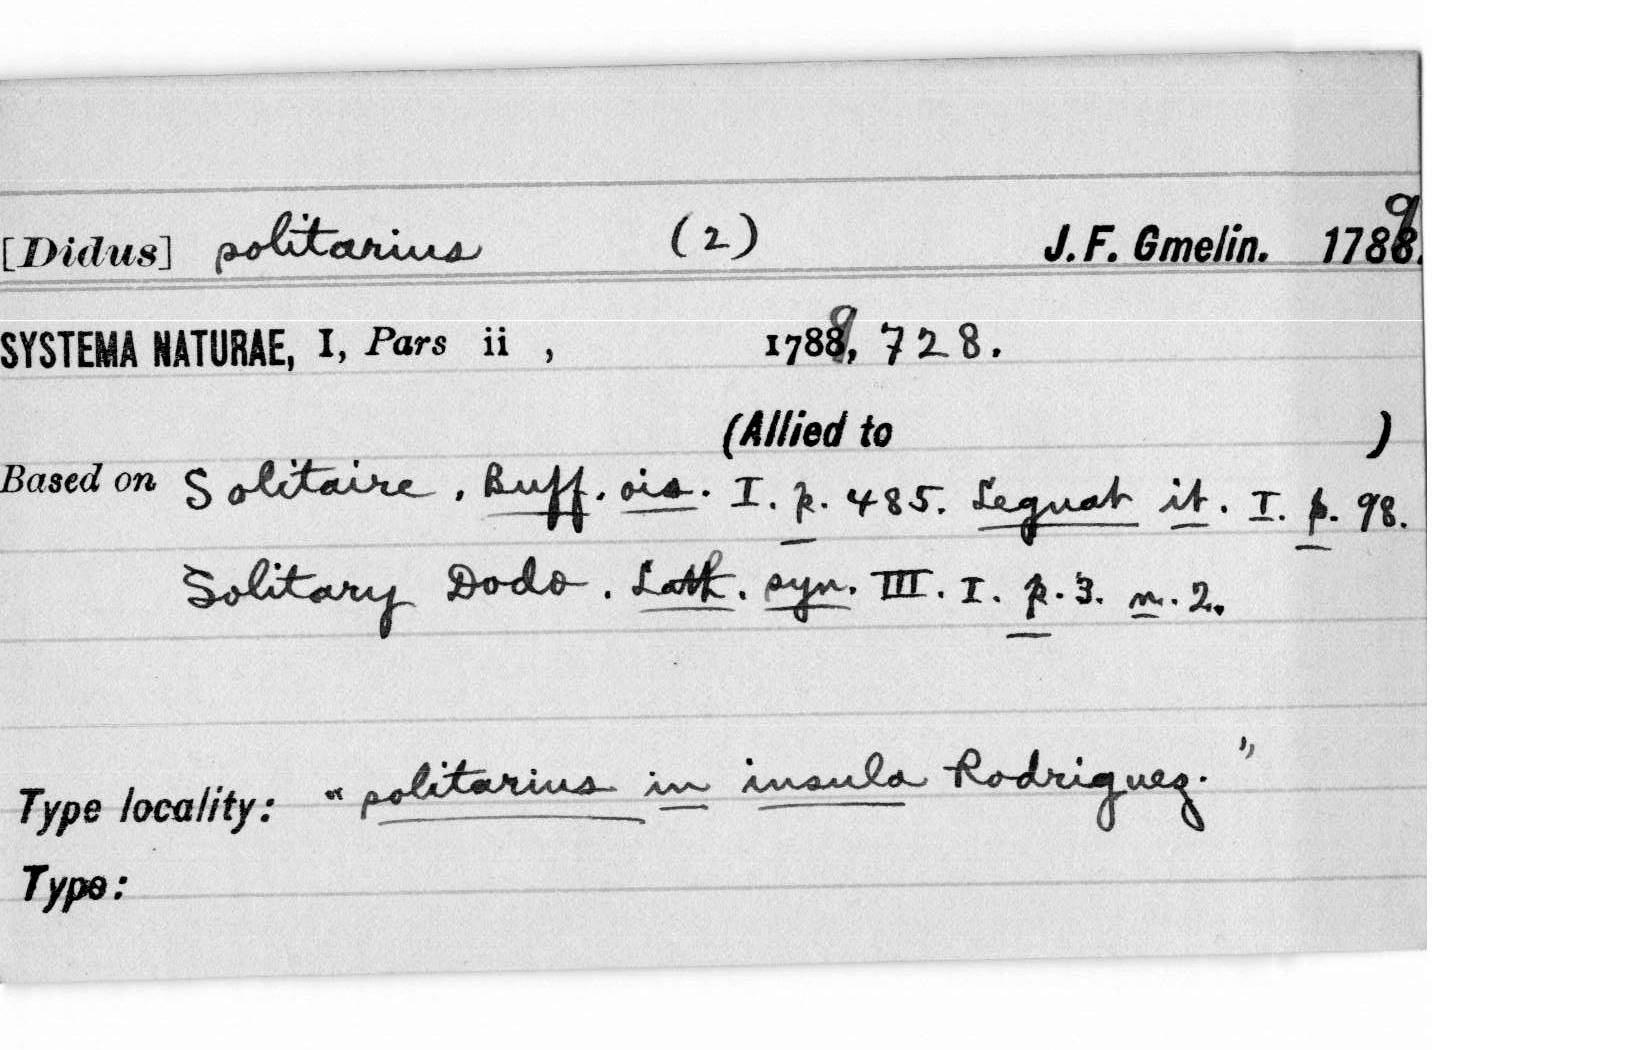 [Didus] solitarius (2) J. F. Gmelin. 1789.
SYSTEMA NATURAE, I, Pars ii , 1789, 728.
(Allied to )
Based on Solitaire. Buff. ois. I. p. 485. Leguat it. I. p. 98.
Solitary Dodo. Lath. syn. III. I. p. 3. n. 2.
Type locality: "solitarius in insula Rodriguez."
Type: